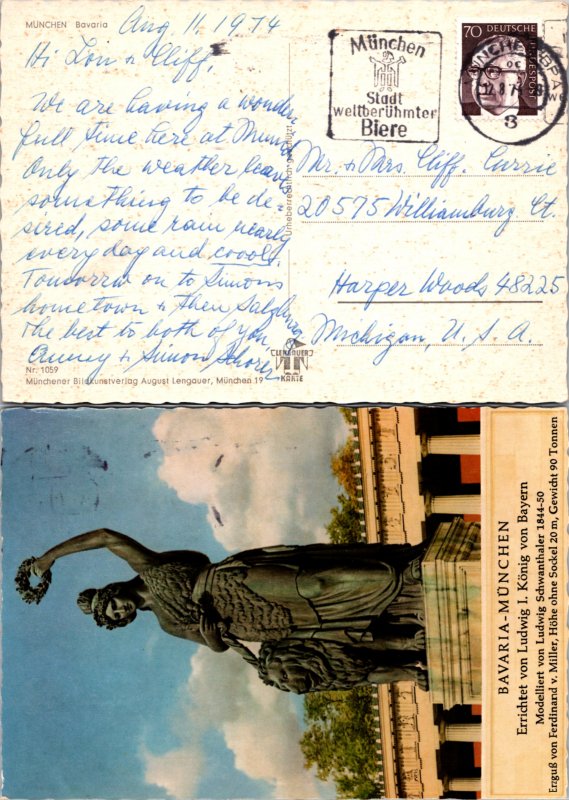 MÜNCHEN Bavaria
Aug 11, 1974
Hi Lou & Cliff,
We are having a wonder
full time here at Munich
Only the weather leaves
something to be de-
sired, some rain nearly
every day and coool.
Tomorrow on to Simons
hometown & then Salzburg
the best to both of you
Anny & Simon
Nr. 1059
Münchener Bildkunstverlag August Lengauer, München 19
Urheberrechtlich geschützt
LENGAUER
KARTE
München
Stadt
weltberühmter
Biere
70 DEUTSCHE
BUNDESPOST
MÜNCHEN
12.8.74
8
Mr. & Mrs. Cliff. Currie
20575 Williamburg Ct.
Harper Woods 48225
Michigan, U. S. A.
BAVARIA-MÜNCHEN
Errichtet von Ludwig I. König von Bayern
Modelliert von Ludwig Schwanthaler 1844-50
Erzguß von Ferdinand v. Miller, Höhe ohne Sockel 20 m, Gewicht 90 Tonnen